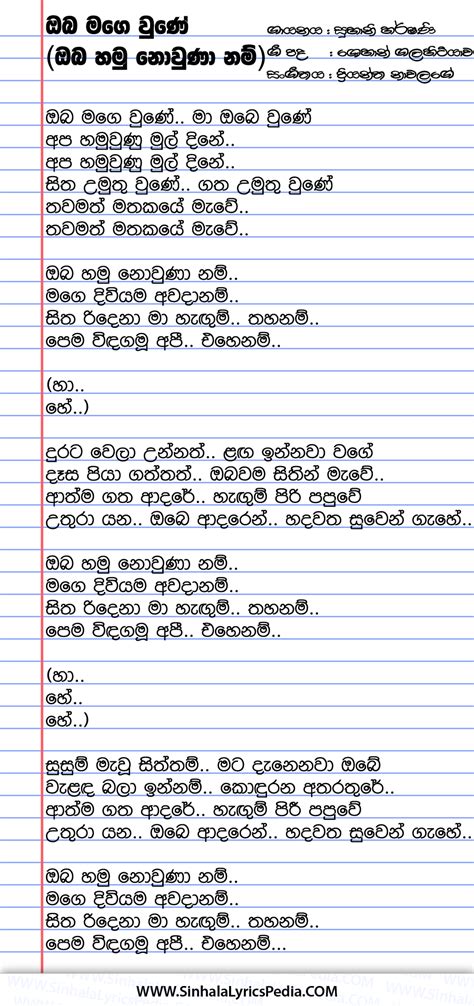 ඔබ මගෙ වුණේ
(ඔබ හමු නොවුණා නම්)
ගායනය : සුභානි හර්ෂණි
ගී පද : ශෙහාන් ගලහිටියාව
සංගීතය : ප්‍රියන්ත නාවලගේ
ඔබ මගෙ වුණේ.. මා ඔබෙ වුණේ
අප හමුවුණු මුල් දිනේ..
අප හමුවුණු මුල් දිනේ..
සිත උමුතු වුණේ.. ගත උමුතු වුණේ
තවමත් මතකයේ මැවේ..
තවමත් මතකයේ මැවේ..
ඔබ හමු නොවුණා නම්..
මගෙ දිවියම අවදානම්..
සිත රිදෙනා මා හැඟුම්.. තහනම්..
පෙම විඳගමූ අපී.. එහෙනම්..
(හා..
හේ..)
දුරට වෙලා උන්නත්.. ළඟ ඉන්නවා වගේ
දෑස පියා ගත්තත්.. ඔබවම සිතින් මැවේ..
ආත්ම ගත ආදරේ.. හැඟුම් පිරි පපුවේ
උතුරා යන.. ඔබෙ ආදරෙන්.. හදවත සුවෙන් ගැහේ..
ඔබ හමු නොවුණා නම්..
මගෙ දිවියම අවදානම්..
සිත රිදෙනා මා හැඟුම්.. තහනම්..
පෙම විඳගමූ අපී.. එහෙනම්..
(හා..
හේ..
හේ..)
සුසුම් මැවූ සිත්තම්.. මට දැනෙනවා ඔබේ
වැළඳ බලා ඉන්නම්.. කොඳුරන අතරතුරේ..
ආත්ම ගත ආදරේ.. හැඟුම් පිරී පපුවේ
උතුරා යන.. ඔබෙ ආදරෙන්.. හදවත සුවෙන් ගැහේ..
ඔබ හමු නොවුණා නම්..
මගෙ දිවියම අවදානම්..
සිත රිදෙනා මා හැඟුම්.. තහනම්..
පෙම විඳගමූ අපී.. එහෙනම්...
WWW.SinhalaLyricsPedia.COM